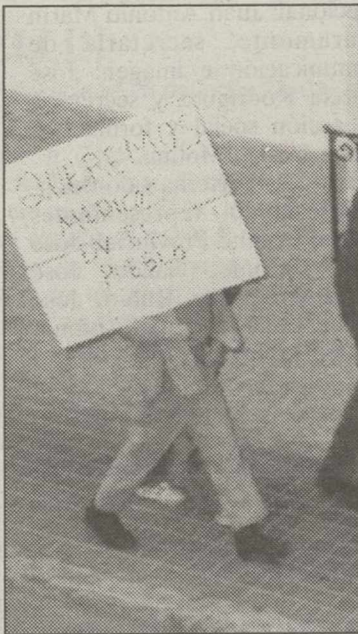 QUEREMOS
MEDICOS
EN EL
PUEBLO